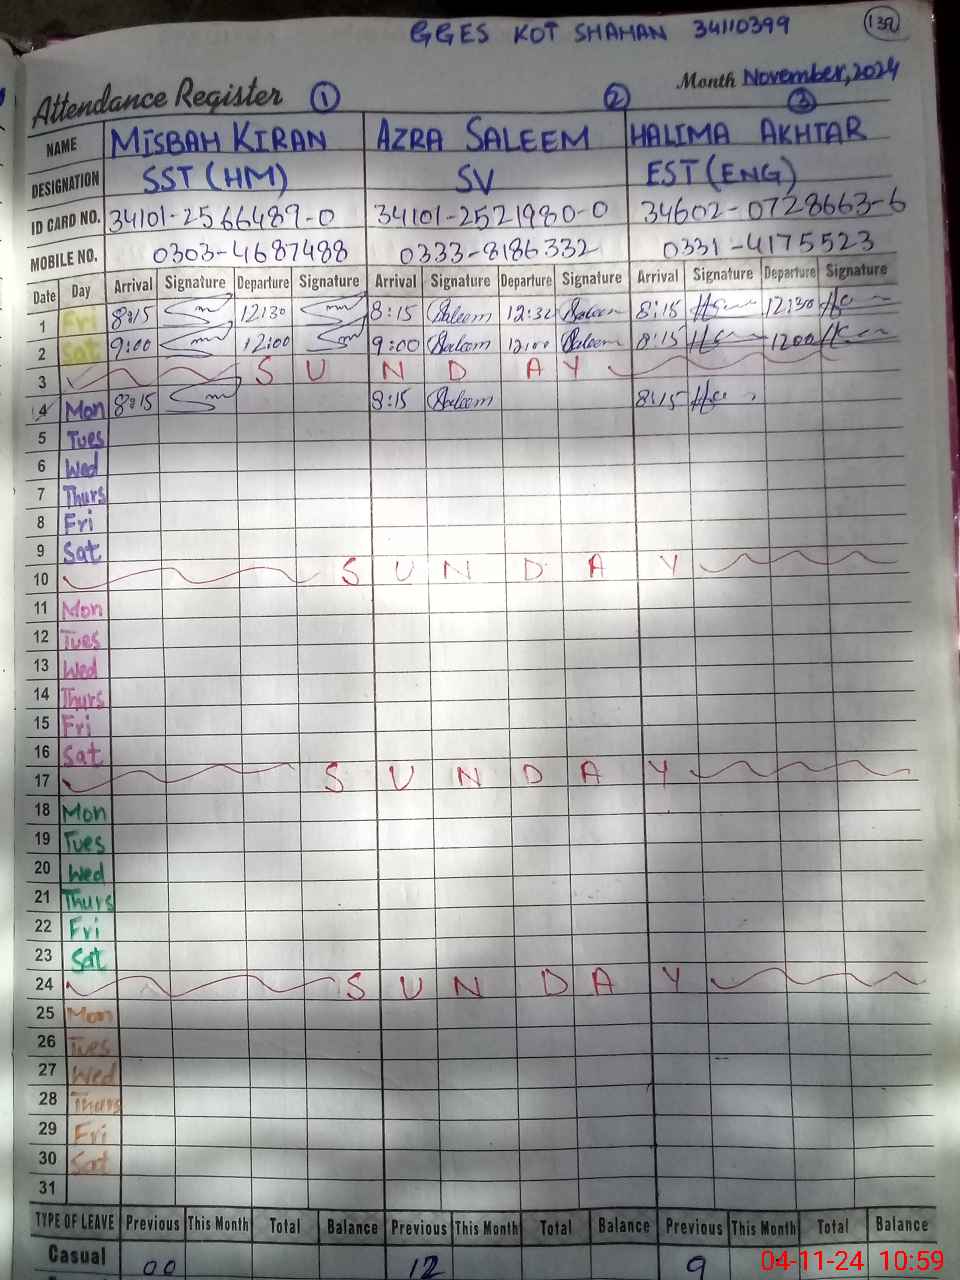 GGES KOT SHAHAN 34110399 132
Attendance Register 1 2 Month November, 2024 3
NAME MISBAH KIRAN AZRA SALEEM HALIMA AKHTAR
DESIGNATION SST (HM) SV EST (ENG)
ID CARD NO. 34101-2566489-0 34101-2521980-0 34602-0728663-6
MOBILE NO. 0303-4687488 0333-8186332 0331-4175523
Date Day Arrival Signature Departure Signature Arrival Signature Departure Signature Arrival Signature Departure Signature
1 Fri 8:15 12:30 8:15 Saleem 12:30 Saleem 8:15 12:30
2 Sat 9:00 12:00 9:00 Saleem 12:00 Saleem 8:15 1200
3 SUNDAY
4 Mon 8:15 8:15 Saleem 8:15
5 Tues
6 Wed
7 Thurs
8 Fri
9 Sat
10 SUNDAY
11 Mon
12 Tues
13 Wed
14 Thurs
15 Fri
16 Sat
17 SUNDAY
18 Mon
19 Tues
20 Wed
21 Thurs
22 Fri
23 Sat
24 SUNDAY
25 Mon
26 Tues
27 Wed
28 Thurs
29 Fri
30 Sat
31
TYPE OF LEAVE Previous This Month Total Balance Previous This Month Total Balance Previous This Month Total Balance
Casual 00 12 9
04-11-24 10:59